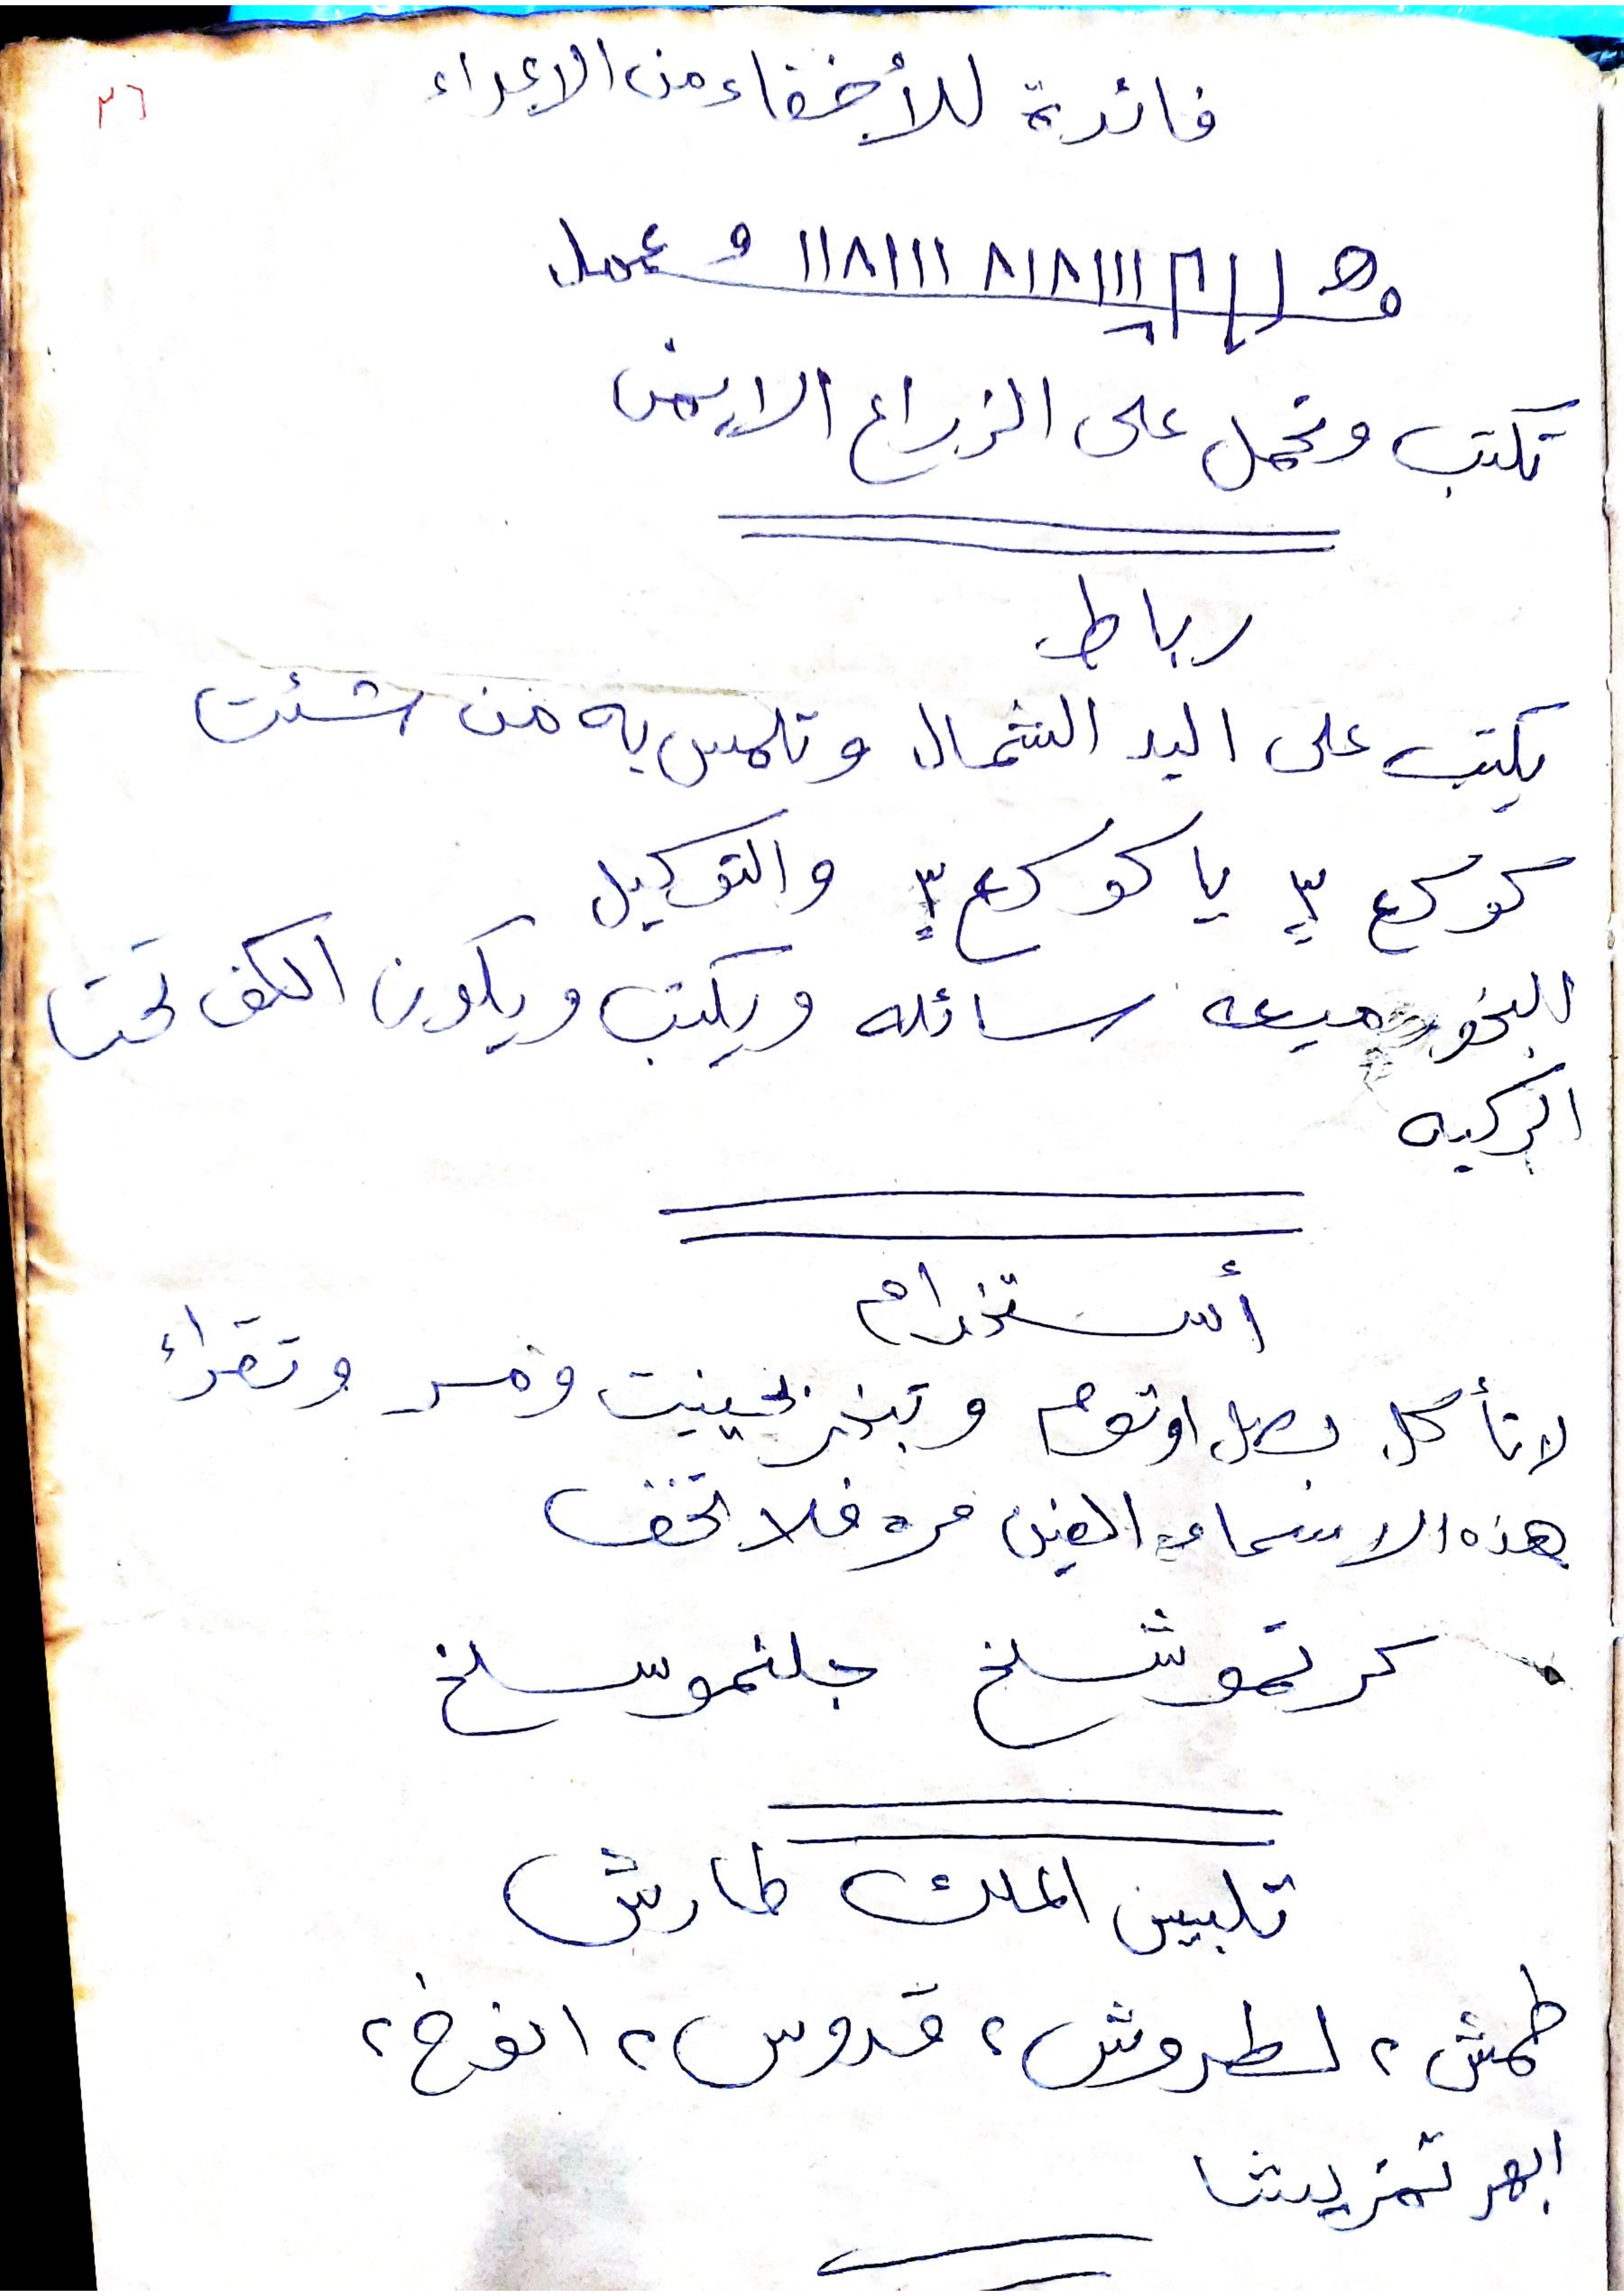 ٣٦
فائدة للأخفاء من الاعداء
١١٨١١١ ٨١٨١١١ و عمل
تكتب وتحمل على الزراع الايمن
رباط
يكتب على اليد الشمال وتلمس به من شئت
كوكع ٣ يا كوكع ٣ والتوكيل
البخور ميعه سائله ويكتب ويكون الكف تحت
الركبه
أستخدام
لا تأكل بصل او ثوم وتبخر بحينيت ومر وتقراء
هذه الاسماء الفين مره فلا تخف
كرتموشلخ جلنموسلخ
تلبيس الملك طارش
طمش ٢ لطروش ٢ قدوس ٢ انوخ ٢
ابهر تمريشا